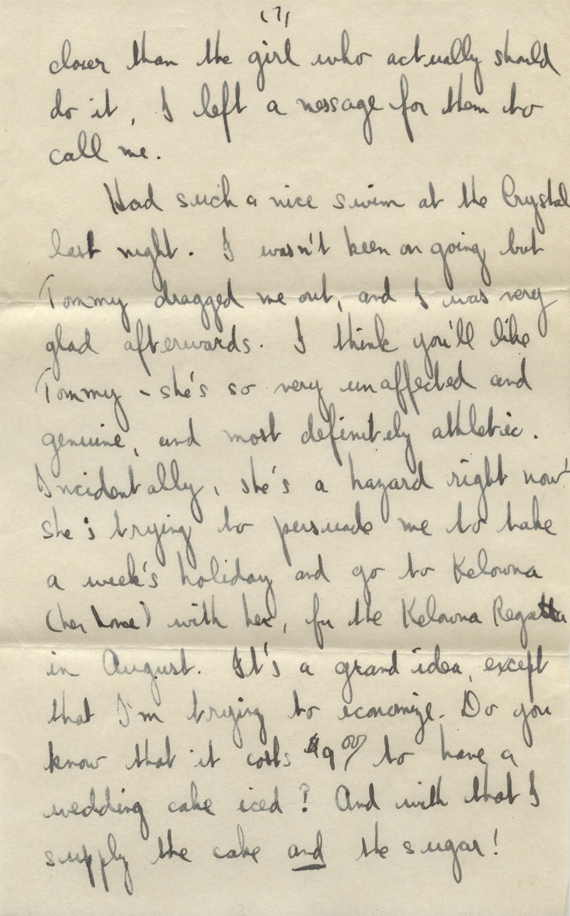 (7)
closer than the girl who actually should
do it, I left a message for them to
call me.
Had such a nice swim at the Crystal
last night. I wasn't keen on going but
Tommy dragged me out, and I was very
glad afterwards. I think you'll like
Tommy - she's so very unaffected and
genuine, and most definitely athletic.
Incidentally, she's a hazard right now!
she's trying to persuade me to take
a week's holiday and go to Kelowna
(her home) with her, for the Kelowna Regatta
in August. It's a grand idea, except
that I'm trying to economize. Do you
know that it costs $9.00 to have a
wedding cake iced? And with that I
supply the cake and the sugar!